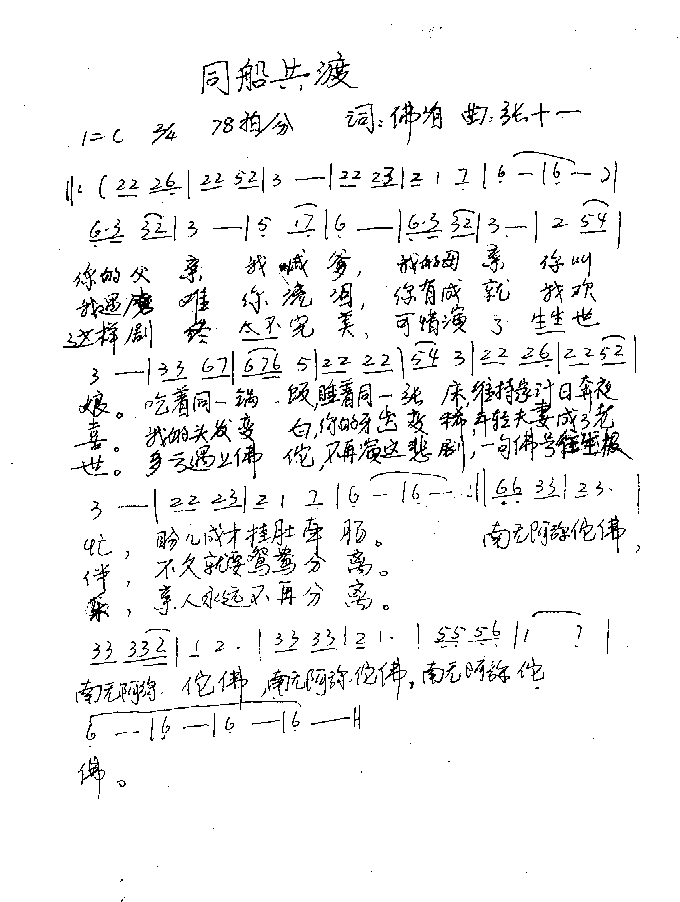 同船共渡
1=C 2/4 78拍/分 词:佛有 曲:张十一
‖: ( 22 26 | 22 52 | 3 — | 22 23 | 2 1 7 | 6 — | 6 — ) |
6·3 32 | 3 — | 5 17 | 6 — | 6·3 32 | 3 — | 2 54 |
你的父 亲, 我 喊 爹, 我的母 亲 你叫
我遇磨 难 你 流 泪, 你有成 就 我欢
这样剧 终 太不完 美, 可惜演 了 生生世
3 — | 33 67 | 676 5 | 22 22 | 54 3 | 22 26 | 22 52 |
娘。 吃着同一锅 饭,睡着同一张 床,维持家计日奔夜
喜。 我的头发变 白,你的牙齿变 稀,年轻夫妻成了老
世。 多亏遇上佛 陀,不再演这悲 剧,一句佛号往生极
3 — | 22 23 | 2 1 7 | 6 — | 6 — :‖ 66 33 | 23· |
忙, 盼儿成才挂肚牵 肠。 南无阿弥陀佛,
伴, 不久就要鸳鸯分 离。
乐, 亲人永远不再分 离。
33 332 | 1 2 · | 33 33 | 2 1 · | 55 56 | 1 7 |
南无阿弥 陀佛,南无阿弥陀佛,南无阿弥陀
6 — | 6 — | 6 — | 6 — ‖
佛。